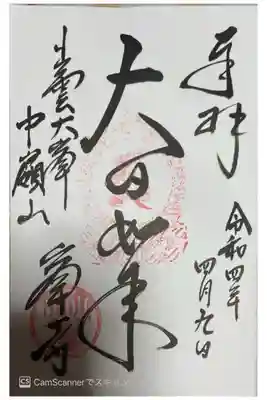 奉拝
令和四年
四月九日
大日如来
出雲大峯
中嶺山
峯寺
CS CamScannerでスキャン